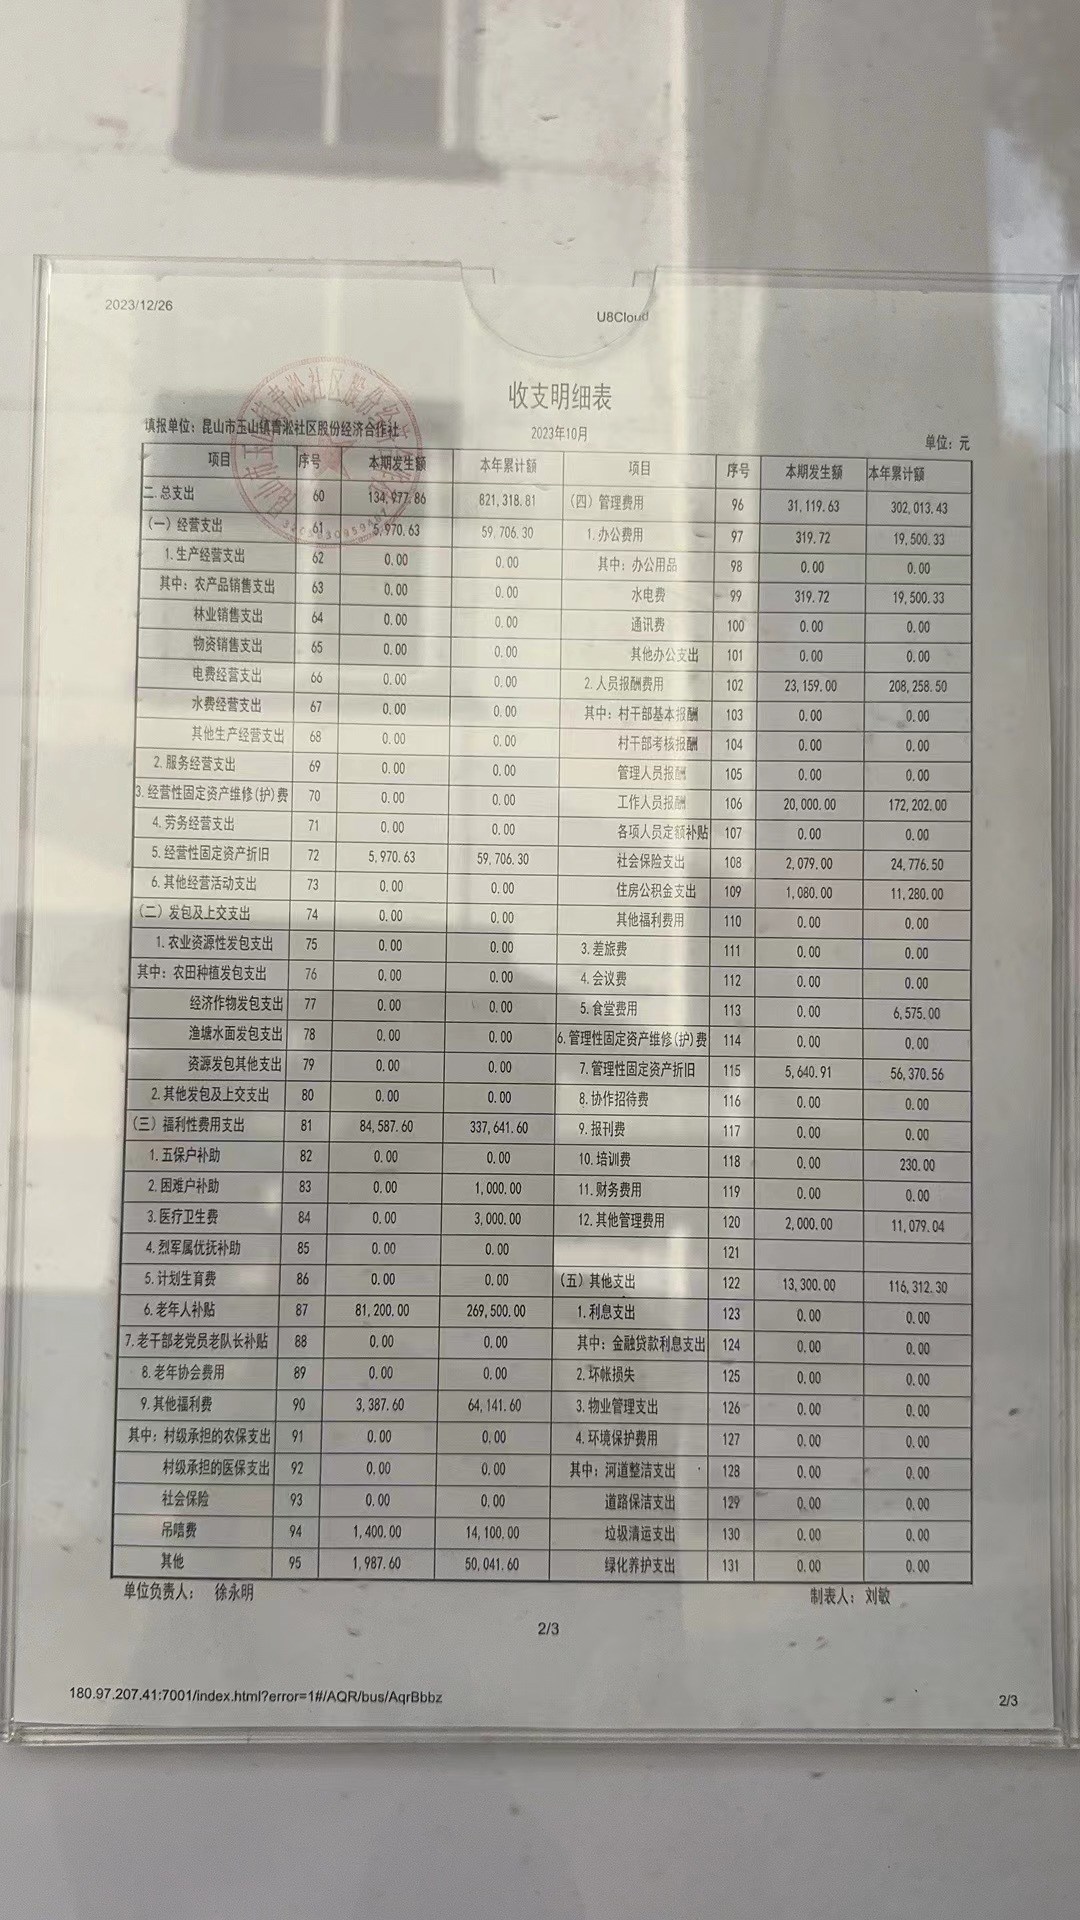 2023/12/26 U8Cloud
收支明细表
填报单位：昆山市玉山镇青淞社区股份经济合作社 2023年10月 单位：元
项目 序号 本期发生额 本年累计额 项目 序号 本期发生额 本年累计额
二.总支出 60 134,977.86 821,318.81 （四）管理费用 96 31,119.63 302,013.43
（一）经营支出 61 5,970.63 59,706.30 1.办公费用 97 319.72 19,500.33
1.生产经营支出 62 0.00 0.00 其中：办公用品 98 0.00 0.00
其中：农产品销售支出 63 0.00 0.00 水电费 99 319.72 19,500.33
林业销售支出 64 0.00 0.00 通讯费 100 0.00 0.00
物资销售支出 65 0.00 0.00 其他办公支出 101 0.00 0.00
电费经营支出 66 0.00 0.00 2.人员报酬费用 102 23,159.00 208,258.50
水费经营支出 67 0.00 0.00 其中：村干部基本报酬 103 0.00 0.00
其他生产经营支出 68 0.00 0.00 村干部考核报酬 104 0.00 0.00
2.服务经营支出 69 0.00 0.00 管理人员报酬 105 0.00 0.00
3.经营性固定资产维修(护)费 70 0.00 0.00 工作人员报酬 106 20,000.00 172,202.00
4.劳务经营支出 71 0.00 0.00 各项人员定额补贴 107 0.00 0.00
5.经营性固定资产折旧 72 5,970.63 59,706.30 社会保险支出 108 2,079.00 24,776.50
6.其他经营活动支出 73 0.00 0.00 住房公积金支出 109 1,080.00 11,280.00
（二）发包及上交支出 74 0.00 0.00 其他福利费用 110 0.00 0.00
1.农业资源性发包支出 75 0.00 0.00 3.差旅费 111 0.00 0.00
其中：农田种植发包支出 76 0.00 0.00 4.会议费 112 0.00 0.00
经济作物发包支出 77 0.00 0.00 5.食堂费用 113 0.00 6,575.00
渔塘水面发包支出 78 0.00 0.00 6.管理性固定资产维修(护)费 114 0.00 0.00
资源发包其他支出 79 0.00 0.00 7.管理性固定资产折旧 115 5,640.91 56,370.56
2.其他发包及上交支出 80 0.00 0.00 8.协作招待费 116 0.00 0.00
（三）福利性费用支出 81 84,587.60 337,641.60 9.报刊费 117 0.00 0.00
1.五保户补助 82 0.00 0.00 10.培训费 118 0.00 230.00
2.困难户补助 83 0.00 1,000.00 11.财务费用 119 0.00 0.00
3.医疗卫生费 84 0.00 3,000.00 12.其他管理费用 120 2,000.00 11,079.04
4.烈军属优抚补助 85 0.00 0.00 121
5.计划生育费 86 0.00 0.00 （五）其他支出 122 13,300.00 116,312.30
6.老年人补贴 87 81,200.00 269,500.00 1.利息支出 123 0.00 0.00
7.老干部老党员老队长补贴 88 0.00 0.00 其中：金融贷款利息支出 124 0.00 0.00
8.老年协会费用 89 0.00 0.00 2.坏帐损失 125 0.00 0.00
9.其他福利费 90 3,387.60 64,141.60 3.物业管理支出 126 0.00 0.00
其中：村级承担的农保支出 91 0.00 0.00 4.环境保护费用 127 0.00 0.00
村级承担的医保支出 92 0.00 0.00 其中：河道整洁支出 128 0.00 0.00
社会保险 93 0.00 0.00 道路保洁支出 129 0.00 0.00
吊唁费 94 1,400.00 14,100.00 垃圾清运支出 130 0.00 0.00
其他 95 1,987.60 50,041.60 绿化养护支出 131 0.00 0.00
单位负责人： 徐永明 制表人：刘敏
2/3
180.97.207.41:7001/index.html?error=1#/AQR/bus/AqrBbbz 2/3